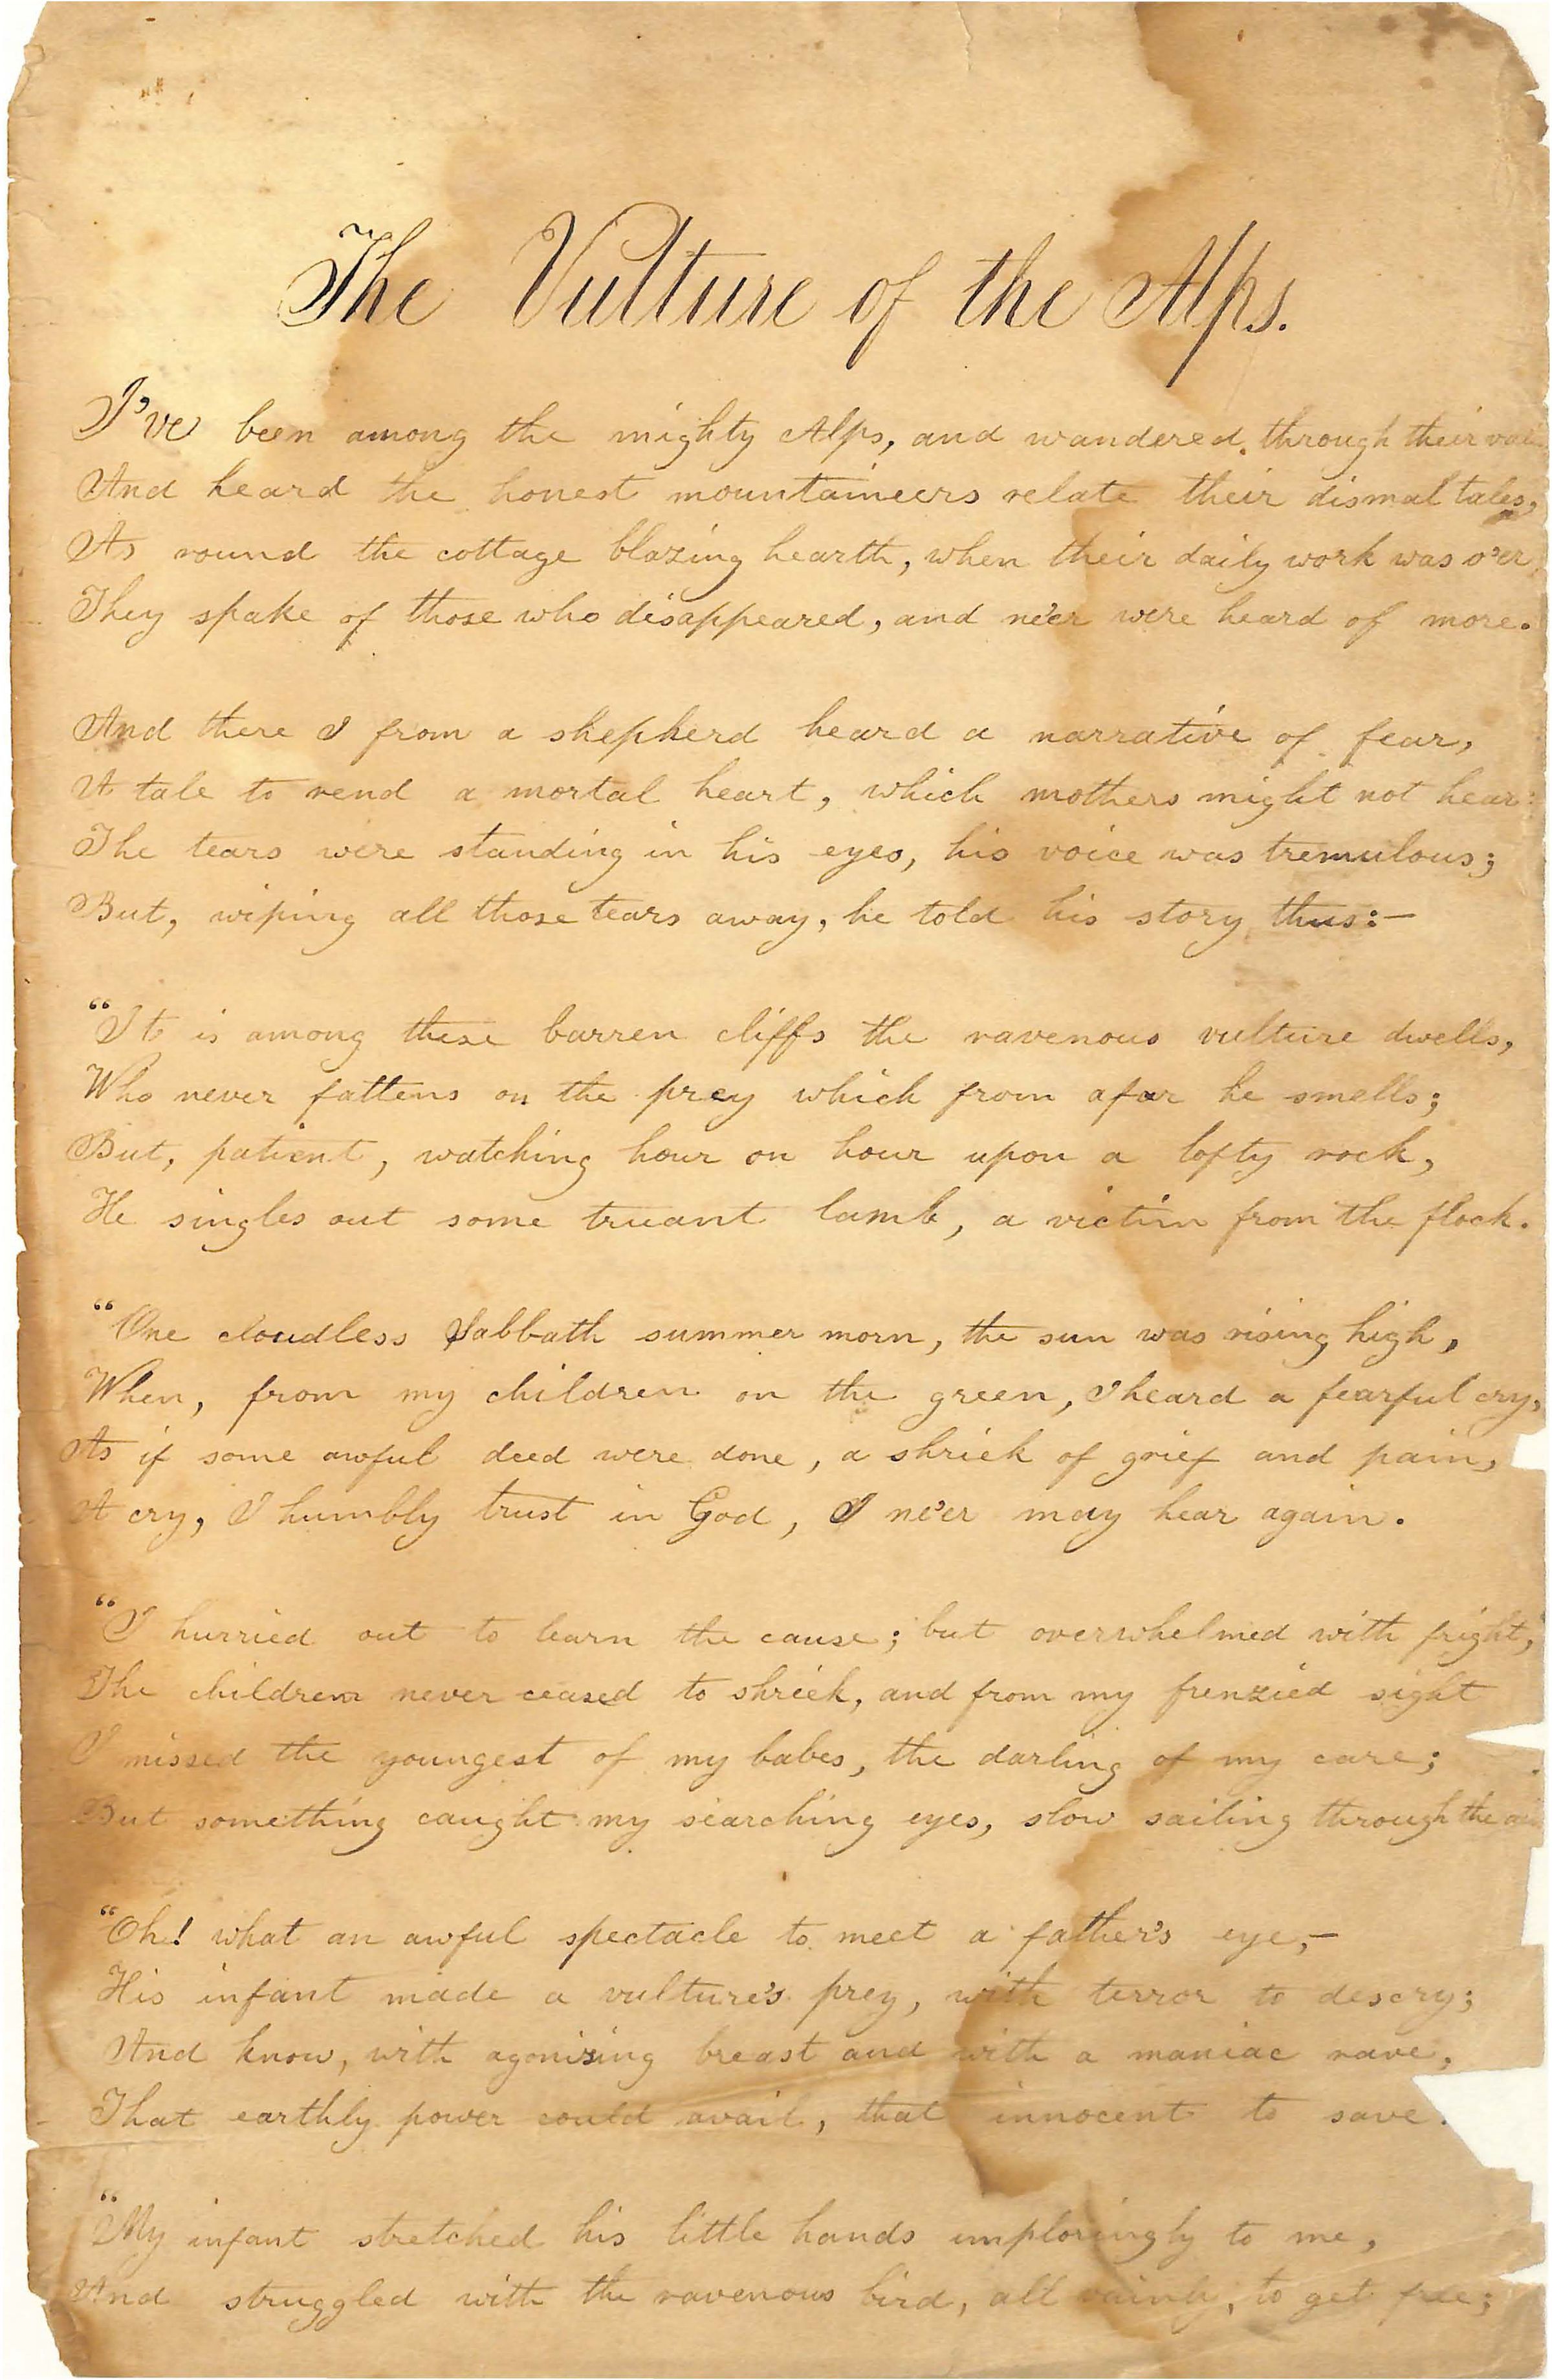 The Vulture of the Alps.
I've been among the mighty Alps, and wandered through their
And heard the honest mountaineers relate their dismal tales,
As round the cottage blazing hearth, when their daily work was o'er,
They spake of those who disappeared, and ne'er were heard of more.
And there I from a shepherd heard a narrative of fear,
A tale to rend a mortal heart, which mothers might not hear:
The tears were standing in his eyes, his voice was tremulous;
But, wiping all those tears away, he told his story thus:—
“It is among these barren cliffs the ravenous vulture dwells,
Who never fattens on the prey which from afar he smells;
But, patient, watching hour on hour upon a lofty rock,
He singles out some truant lamb, a victim from the flock.
“One cloudless Sabbath summer morn, the sun was rising high,
When, from my children on the green, I heard a fearful cry,
As if some awful deed were done, a shriek of grief and pain,
A cry, I humbly trust in God, I ne'er may hear again.
“I hurried out to learn the cause; but overwhelmed with fright,
The children never ceased to shriek, and from my frenzied sight
I missed the youngest of my babes, the darling of my care;
But something caught my searching eyes, slow sailing through the
“Oh! what an awful spectacle to meet a father's eye,—
His infant made a vulture's prey, with terror to descry;
And know, with agonizing breast and with a maniac rave,
That earthly power could avail, that innocent to save.
“My infant stretched his little hands imploringly to me,
And struggled with the ravenous bird, all vainly, to get free;